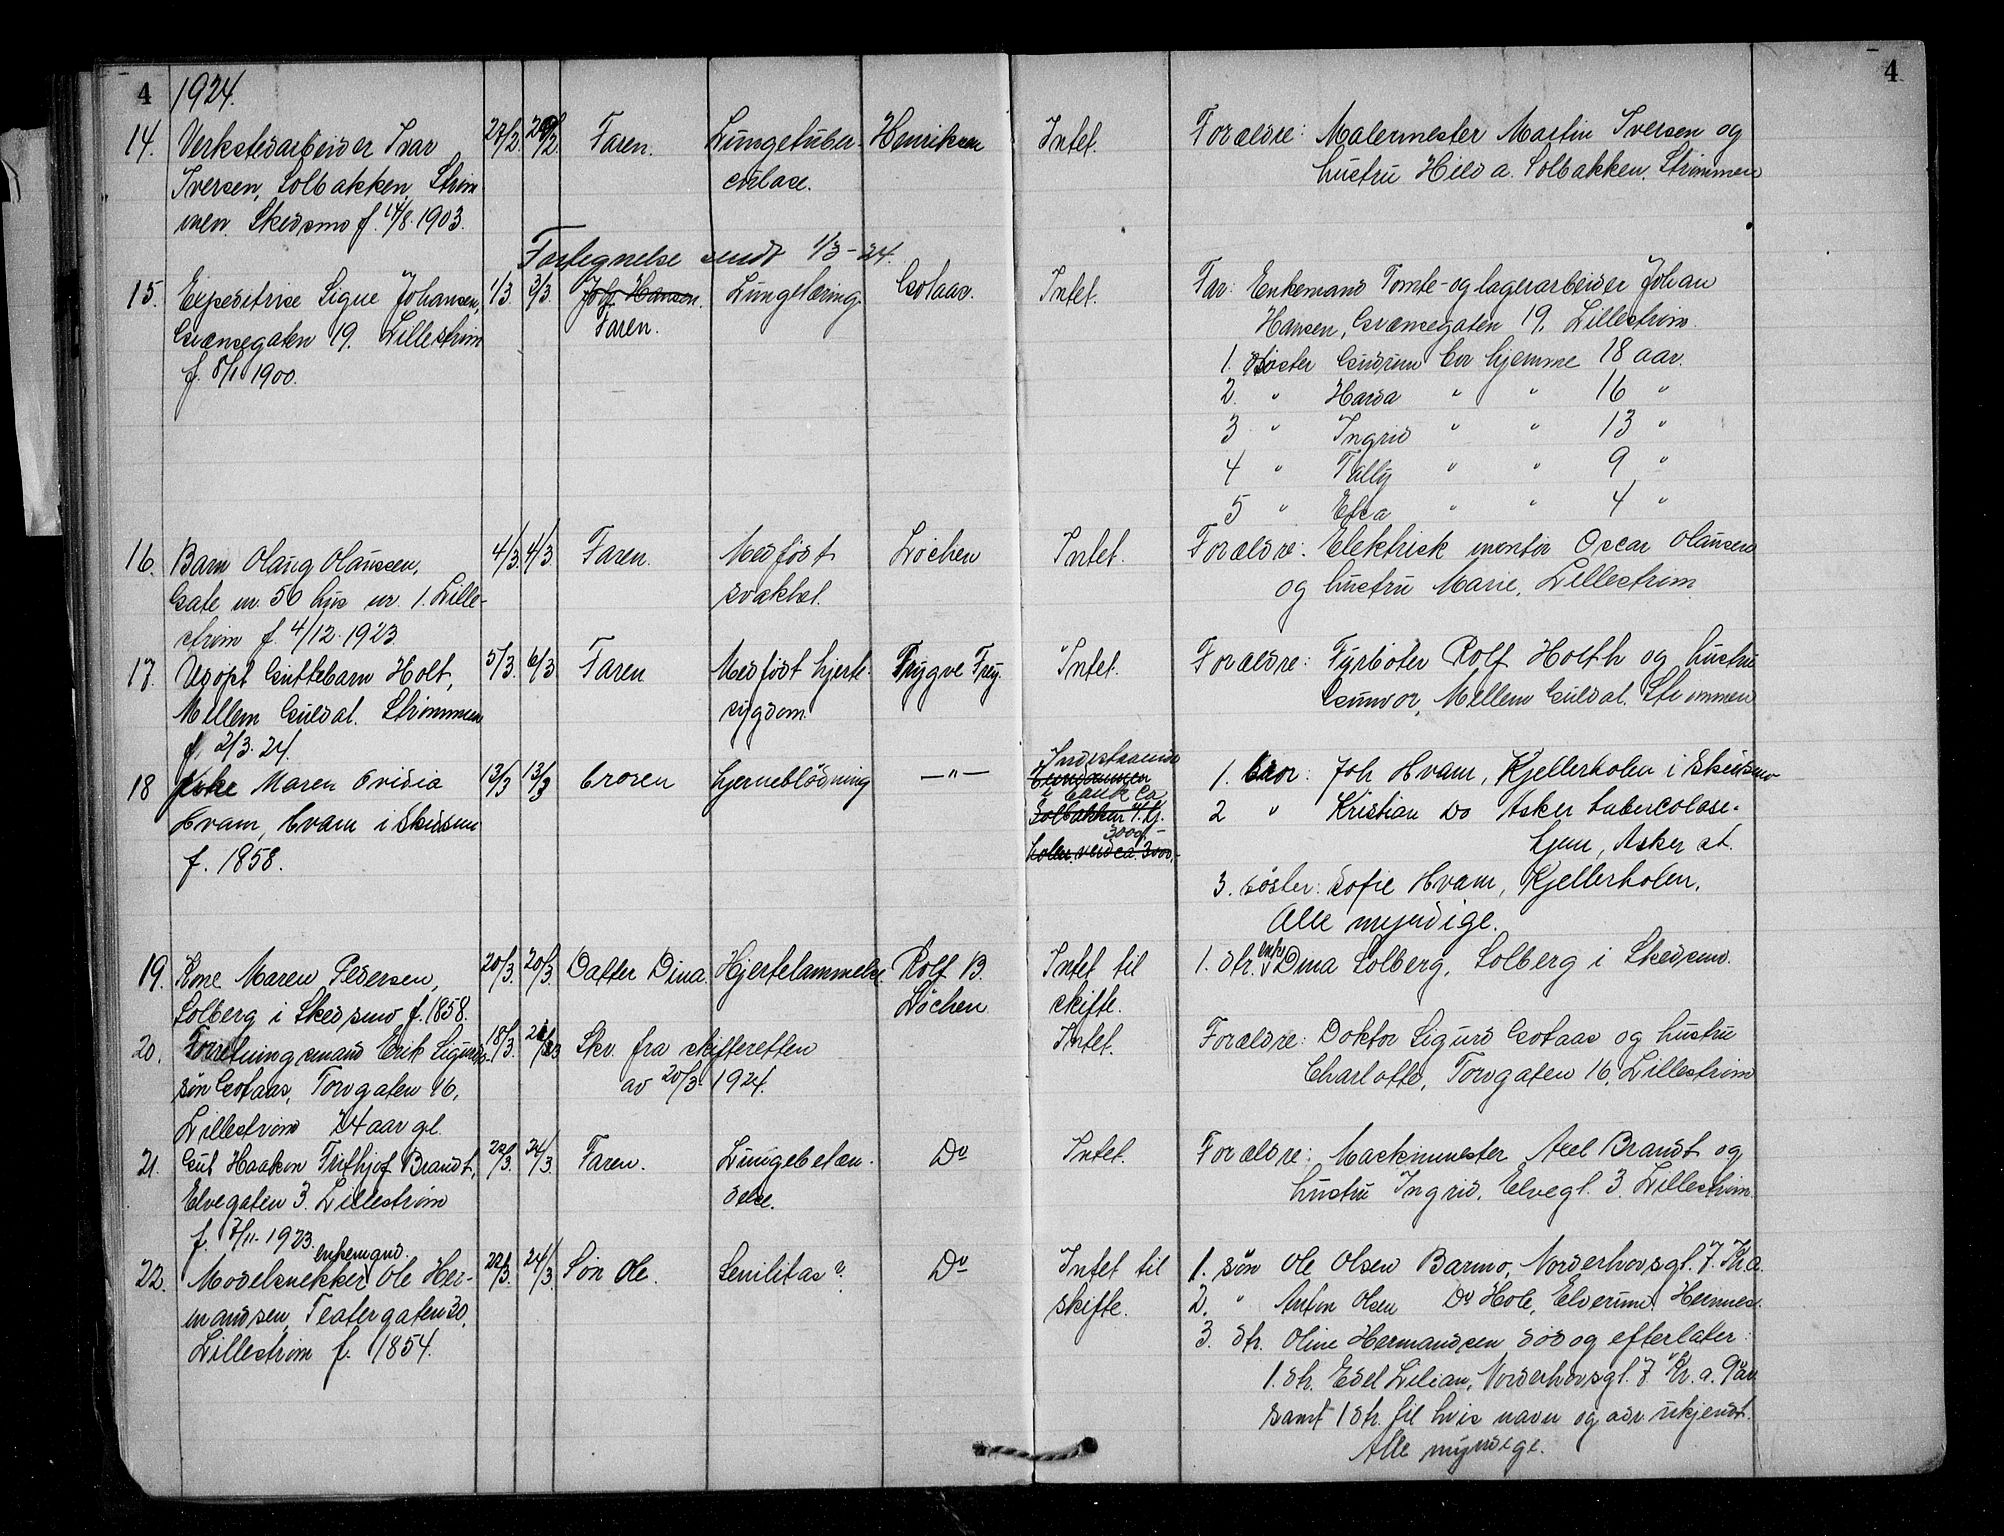 4 1924. 4
14. Verkstedarbeider Ivar 27/2. 29/2. Faren. Lungetuber- Henriksen Intet. Forældre: Malermester Martin Iversen og
Iversen, Solbakken, Strøm culose. hustru Hilda. Solbakken. Strømmen
men. Skedsmo f. 14/8. 1903.
Fortegnelse sendt 1/3-24.
15. Expeditrise Signe Johansen, 1/3. 3/3. Joh. Hansen. Lungetæring. Gotaas. Intet. Far: Enkemand Tomte-og lagerarbeider Johan
Grænsegaten 19. Lillestrøm Faren. Hansen, Grænsegaten 19, Lillestrøm.
f. 8/1 1900. 1. søster Gudrun bor hjemme 18 aar.
2. " Harda " " 16 "
3 " Ingrid " " 13 "
4 " Tully " " 9 "
5 " Elsa " " 4 "
16. Barn Olaug Olaussen, 4/3. 4/3. Faren. Medfødt Løchen Intet. Forældre: Elektrisk montør Oscar Olaussen
Gate nr. 56 hus nr. 1. Lille- svakhet. og hustru Marie, Lillestrøm
strøm f. 4/12. 1923
17. Udøpt Guttebarn Holt, 5/3. 6/3 Faren Medfødt hjerte- Trygve Frey. Intet. Forældre: Fyrbøter Rolf Holth og hustru
Mellem Guldal. Strømmen sygdom. Gunvor, Mellem Guldal. Strømmen
f. 2/3. 24.
18 Maren Ovidia 13/3 13/3 Broren hjerneblødning —"— Indestaaende 1. bror: Joh Hvam, Kjellerholen i Skedsmo
Hvam, Hvam i Skedsmo i bank ca 2 " Kristian Do Asker tubercolose-
f. 1858. 3000.- hjem, Asker st.
3. søster: Sofie Hvam, Kjellerholen.
Alle myndige.
19. Kone Maren Pedersen, 20/3. 20/3. Datter Dina. Hjertelammelse. Rolf B. Intet til 1. dtr. enke Dina Solberg, Solberg i Skedsmo.
Solberg i Skedsmo f. 1858. Løchen skifte.
20. Forretningsmand Erik Sigurd- 18/3. Skr. fra skifteretten Intet. Forældre: Doktor Sigurd Gotaas og hustru
søn Gotaas, Torvgaten 16, av 20/3 1924. Charlotte, Torvgaten 16, Lillestrøm
Lillestrøm 24 aar gl.
21. Gut Haakon Frithjof Brandt, 22/3. 24/3 Faren. Lungebetæn- Do Intet. Forældre: Maskinmester Axel Brandt og
Elvegaten 3. Lillestrøm delse. hustru Ingrid, Elvegt. 3. Lillestrøm.
f. 7/11. 1923.
enkemand.
22. Modelsnekker Ole Her- 22/3. 24/3. Søn Ole. Senilitas? Do Intet til 1. søn Ole Olsen Barmo, Norderhovsgt. 7. Kr.a.
mandsen, Teatergaten 30, skifte. 2. " Anton Olsen Do Hole, Elverum. Hernes.
Lillestrøm f. 1854. 3. dtr. Oline Hermandsen død og efterlater:
1. dtr. Edel Lilian, Norderhovsgt. 7 Kr. a. 9 aar
samt 1 dtr. til hvis navn og adr. ukjendt.
Alle myndige.